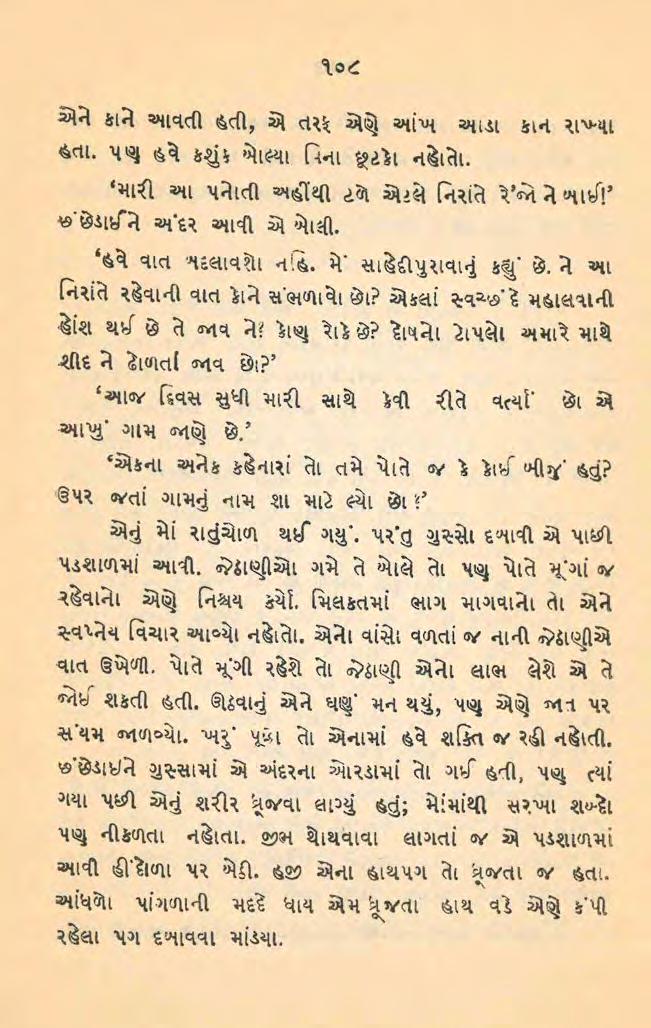 ૧૦૮
એને કાને આવતી હતી, એ તરફ એણે આંખ આડા કાન રાખ્યા
હતા. પણ હવે કશુંક બોલ્યા વિના છૂટકો નહોતો.
‘મારી આ પનોતી અહીંથી ટળે એટલે નિરાંતે રે’જો ને બાઈ!’
છંછેડાઈને અંદર આવી એ બોલી.
‘હવે વાત બદલાવશો નહિ. મેં સાહેદીપુરાવાનું કહ્યું છે. ને આ
નિરાંતે રહેવાની વાત કોને સંભળાવો છો? એકલાં સ્વચ્છંદે મહાલવાની
હોંશ થઈ છે તે જાવ ને? કોણ રોકે છે? દોષનો ટોપલો અમારે માથે
શીદ ને ઢોળતાં જાવ છો?’
‘આજ દિવસ સુધી મારી સાથે કેવી રીતે વર્ત્યાં છો એ
આખું ગામ જાણે છે.’
‘એકના અનેક કહેનારાં તો તમે પોતે જ કે કોઈ બીજું હતું?
ઉપર જતાં ગામનું નામ શા માટે લ્યો છો ?’
એનું મોં રાતુંચોળ થઈ ગયું. પરંતુ ગુસ્સો દબાવી એ પાછી
પડશાળમાં આવી. જેઠાણીઓ ગમે તે બોલે તો પણ પોતે મૂંગાં જ
રહેવાનો એણે નિશ્ચય કર્યો. મિલકતમાં ભાગ માગવાનો તો એને
સ્વપ્નેય વિચાર આવ્યો નહોતો. એનો વાંસો વળતાં જ નાની જેઠાણીએ
વાત ઉખેળી. પોતે મૂંગી રહેશે તો જેઠાણી એનો લાભ લેશે એ તે
જોઈ શકતી હતી. ઊઠવાનું એને ઘણું મન થયું, પણ એણે જાત પર
સંયમ જાળવ્યો. ખરું પૂછો તો એનામાં હવે શક્તિ જ રહી નહોતી.
છંછેડાઈને ગુસ્સામાં એ અંદરના ઓરડામાં તો ગઈ હતી, પણ ત્યાં
ગયા પછી એનું શરીર ધ્રૂજવા લાગ્યું હતું; મોંમાંથી સરખા શબ્દો
પણ નીકળતા નહોતા. જીભ થોથવાવા લાગતાં જ એ પડશાળમાં
આવી હીંદોળા પર બેઠી. હજી એના હાથપગ તો ધ્રૂજતા જ હતા.
આંધળો પાંગળાની મદદે ધાય એમ ધ્રૂજતા હાથ વડે એણે કંપી
રહેલા પગ દબાવવા માંડ્યા.